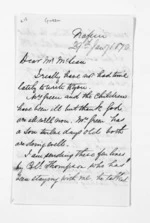 Napier
29th Jany 1870
Dear Mr McLean
I really have not had time
lately to write to you.
Mrs Green and the children
have been ill but thank God
are all well now. Mrs has
a son some days old both
are doing well.
I am sending these few lines
by Thompson who has
been staying with me he